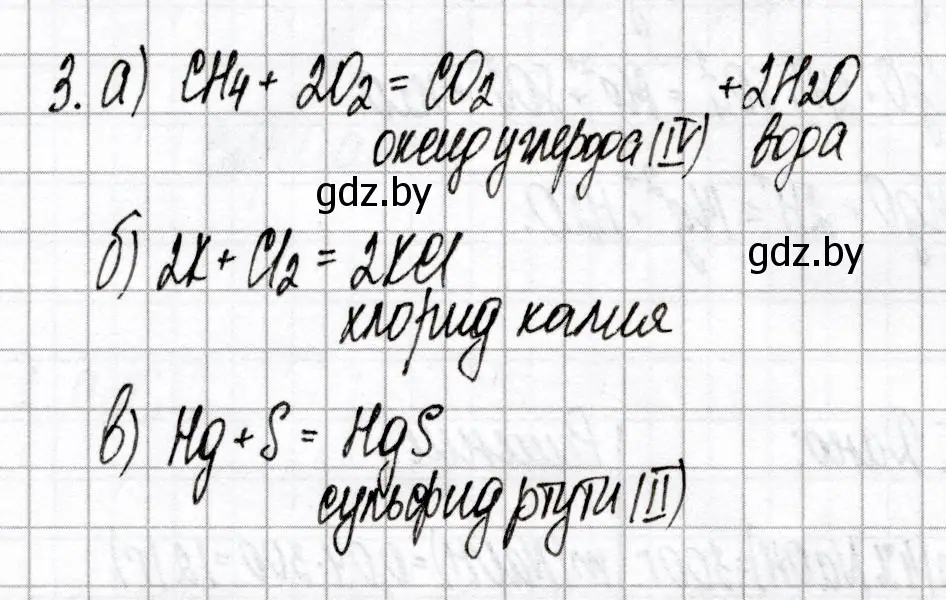 3. а) CH4 + 2O2 = CO2 + 2H2O
оксид углерода (IV) вода
gdz.by
б) 2K + Cl2 = 2KCl
gdz.by
хлорид калия
в) Hg + S = HgS
сульфид ртути (II)